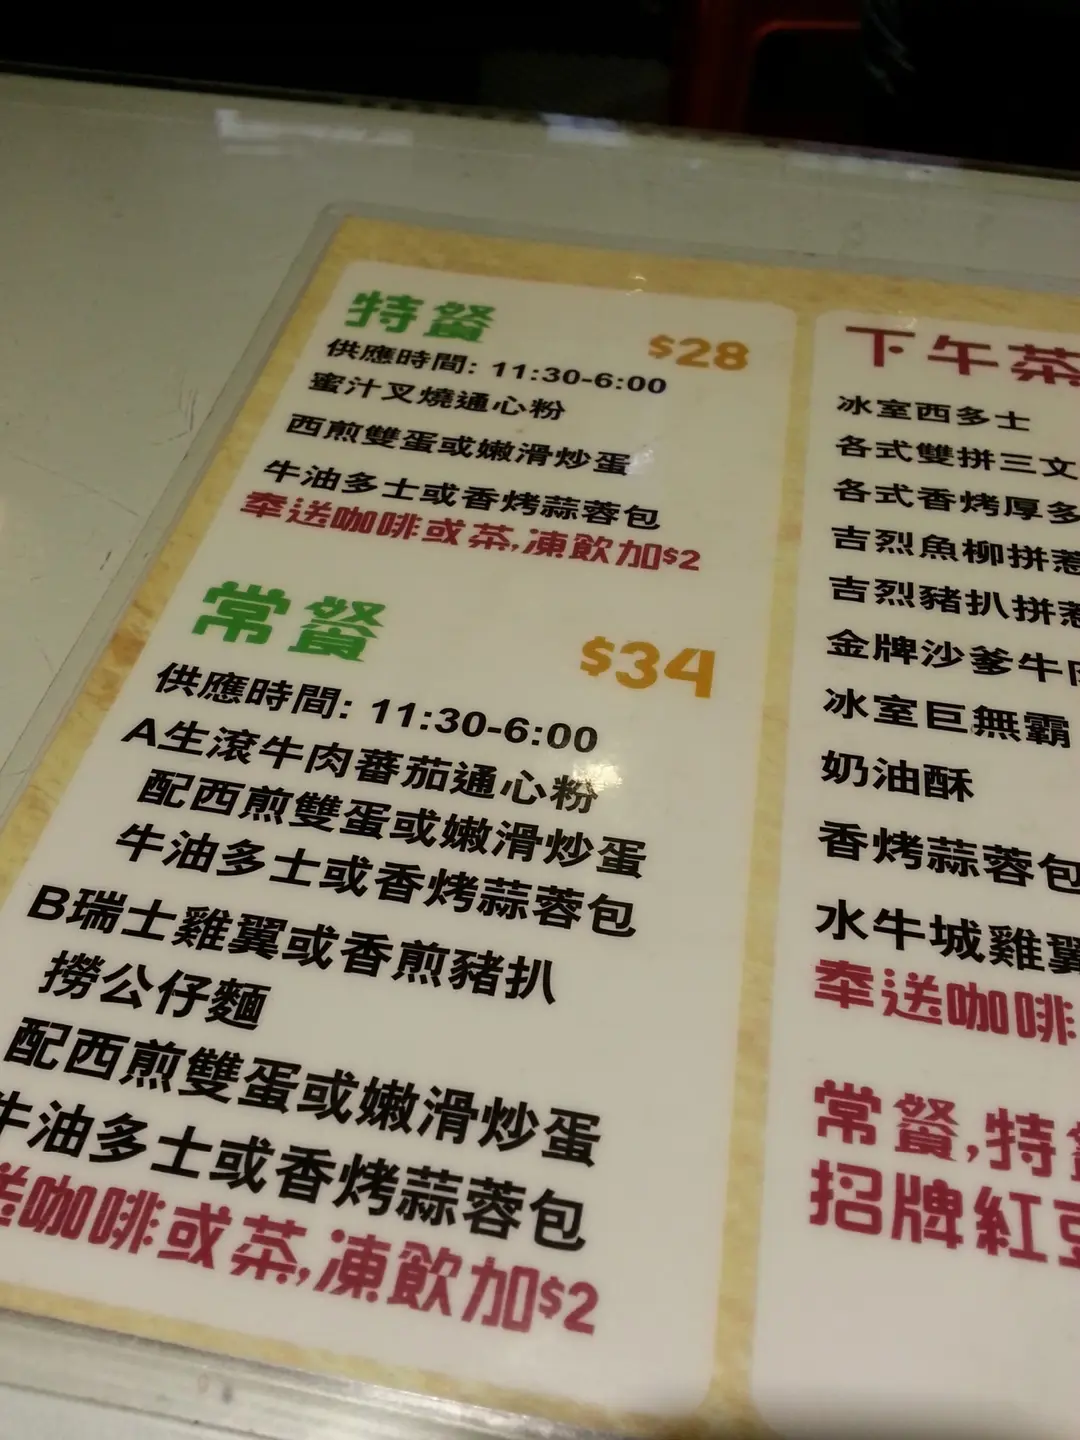 特餐
$28
供應時間: 11:30-6:00
蜜汁叉燒通心粉
西煎雙蛋或嫩滑炒蛋
牛油多士或香烤蒜蓉包
奉送咖啡或茶,凍飲加$2
常餐
$34
供應時間: 11:30-6:00
A生滾牛肉蕃茄通心粉
配西煎雙蛋或嫩滑炒蛋
牛油多士或香烤蒜蓉包
B瑞士雞翼或香煎豬扒
撈公仔麵
配西煎雙蛋或嫩滑炒蛋
牛油多士或香烤蒜蓉包
送咖啡或茶,凍飲加$2
下午茶
冰室西多士
各式雙拼三文
各式香烤厚多
吉烈魚柳拼惹
吉烈豬扒拼惹
金牌沙爹牛肉
冰室巨無霸
奶油酥
香烤蒜蓉包
水牛城雞翼
奉送咖啡
常餐,特餐
招牌紅豆